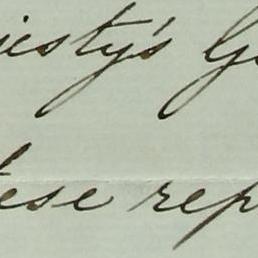 jesty's G
ese rep